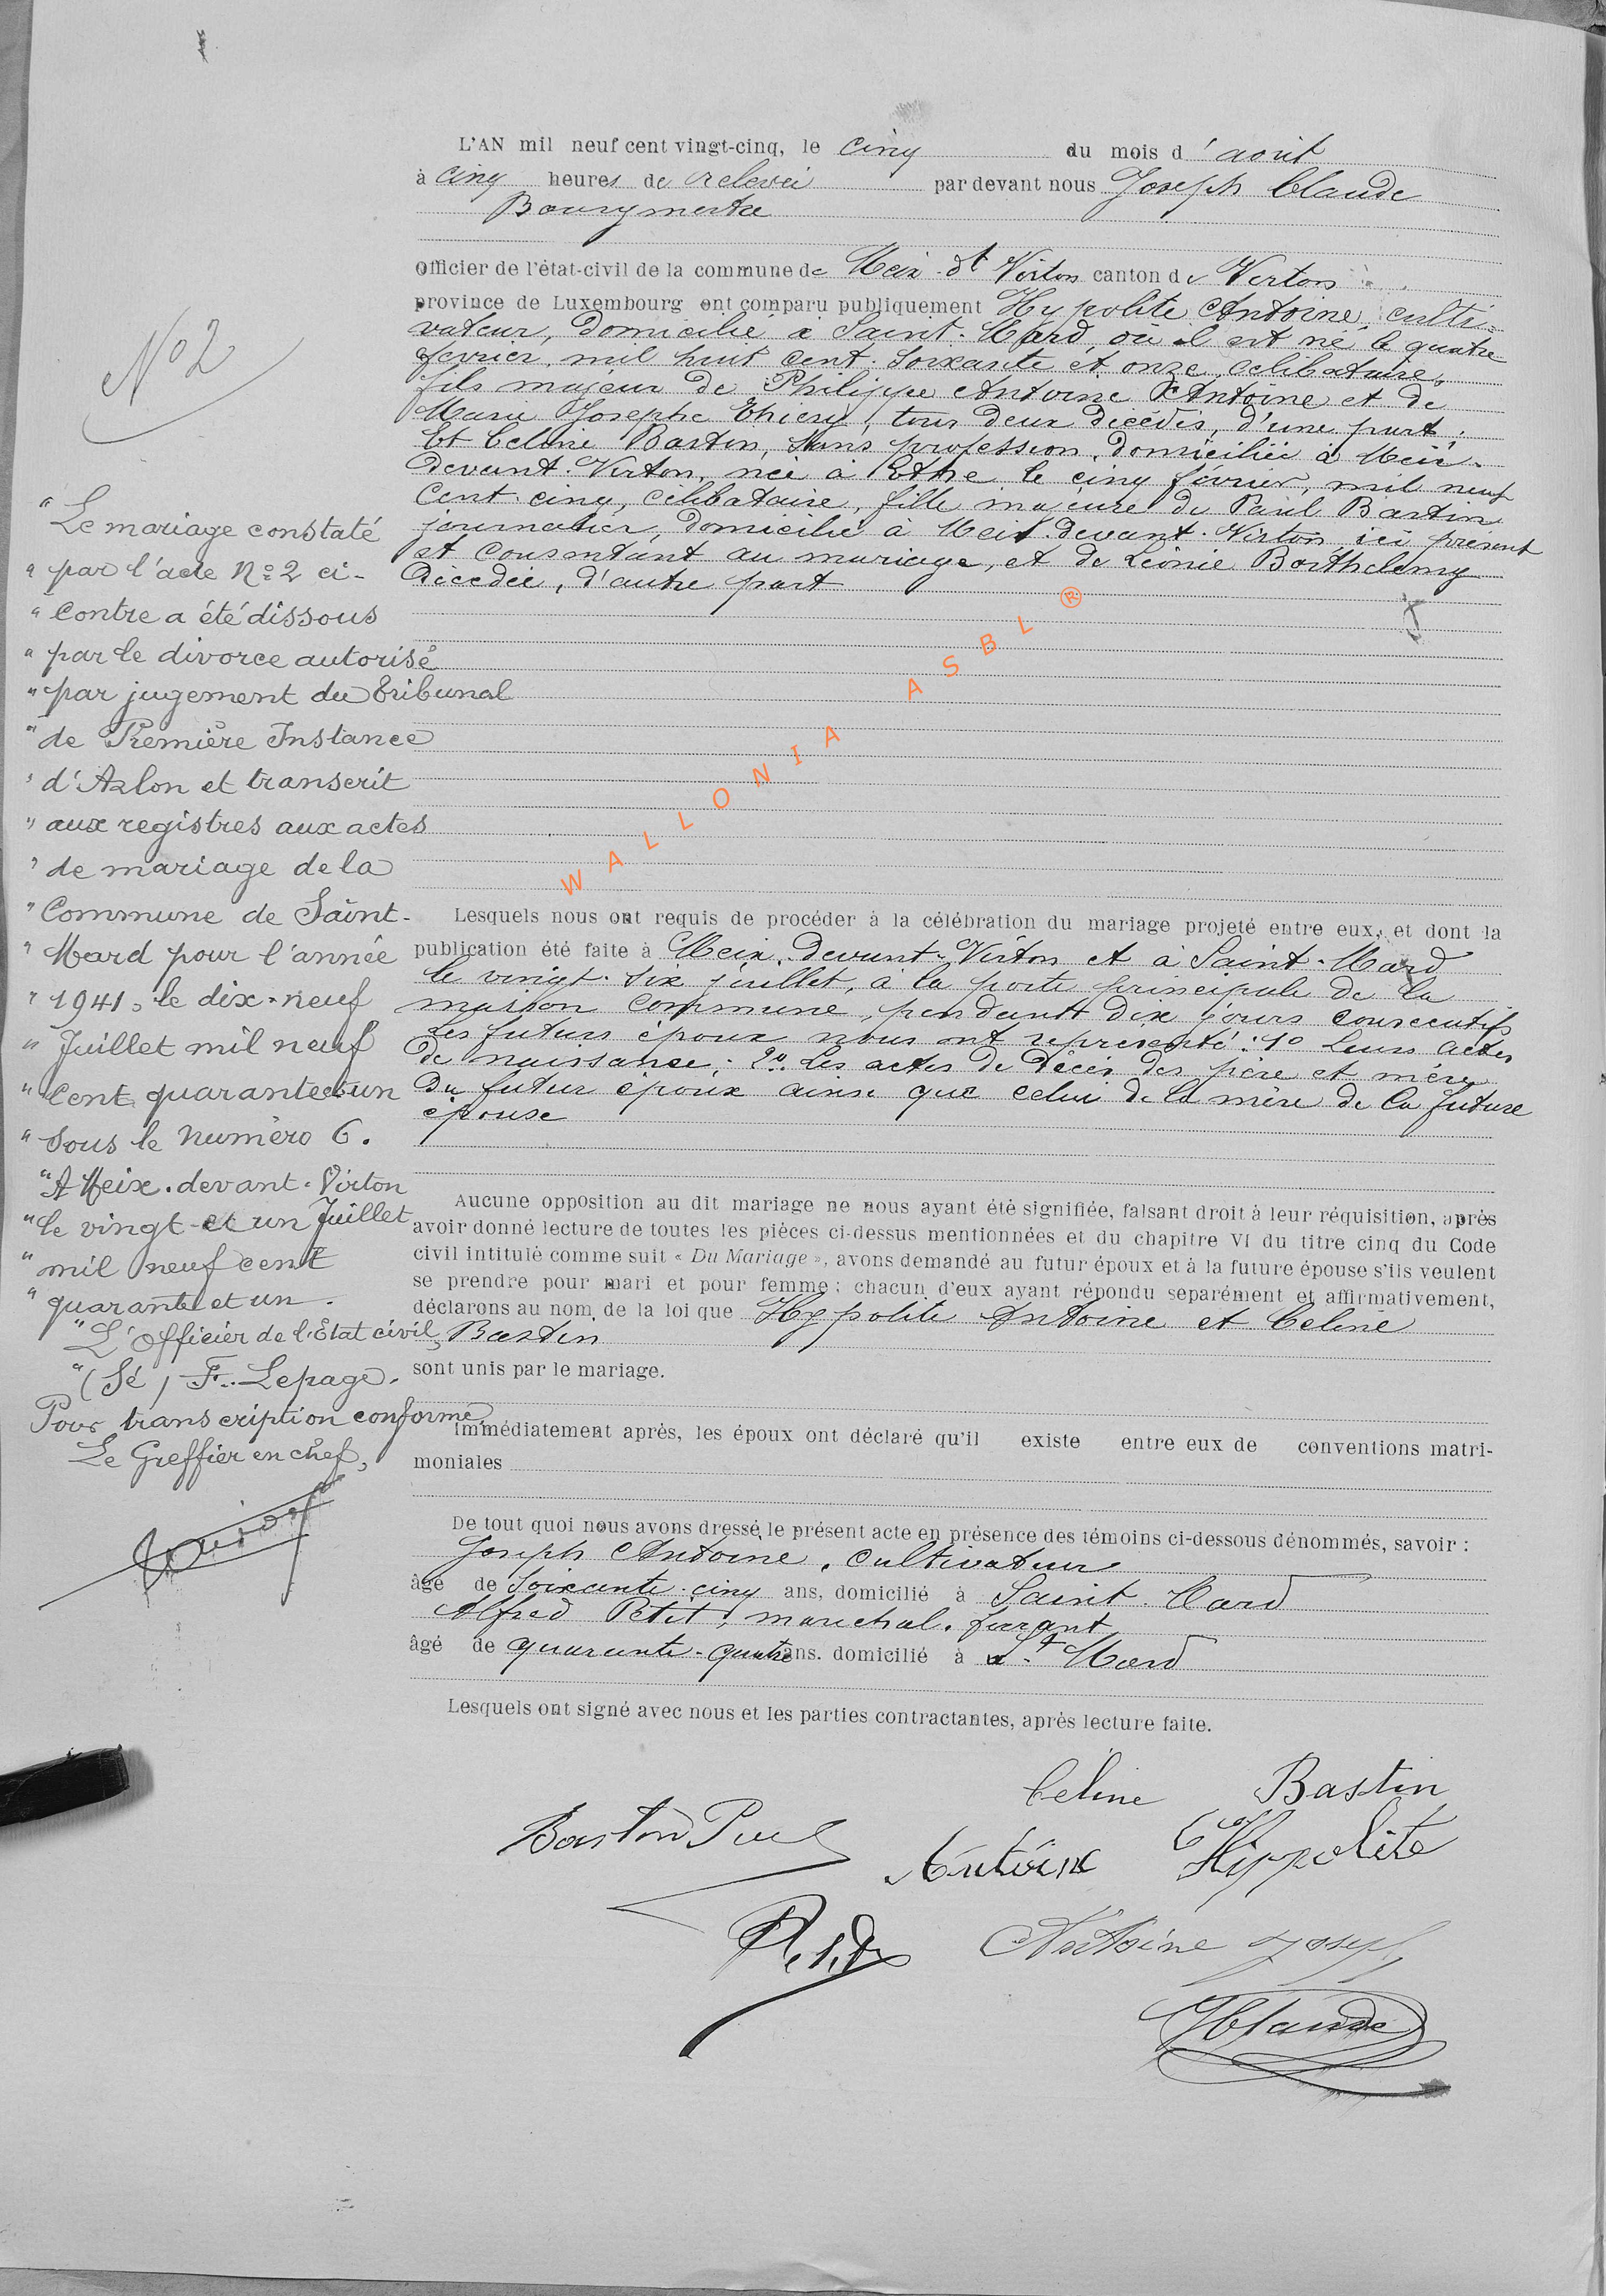 L'AN mil neuf cent vingt-cinq, le cinq du mois d'août
à cinq heures de relevée par devant nous Joseph Claude
Bourgmestre
Officier de l'état-civil de la commune de Meix-dt Virton canton de Virton
province de Luxembourg ont comparu publiquement Hypolite Antoine, culti-
vateur, domicilié à Saint-Mard, où il est né le quatre
février mil huit cent soixante et onze, célibataire,
fils majeur de Philippe Antoine Antoine et de
Marie Josephe Thiery, tous deux décédés, d'une part;
Et Celine Bastin, sans profession, domiciliée à Meix-
devant-Virton, née à Ethe le cinq février, mil neuf
cent cinq, célibataire, fille majeure de Paul Bastin
journalier, domicilié à Meix-devant-Virton, ici présent
et consentant au mariage, et de Léonie Barthelemy
décédée, d'autre part
Lesquels nous ont requis de procéder à la célébration du mariage projeté entre eux, et dont la
publication été faite à Meix-devant-Virton et à Saint-Mard
le vingt-six juillet, à la porte principale de la
maison commune, pendant dix jours consécutifs
Les futurs époux nous ont représenté: 1o Leurs actes
de naissance; 2o Les actes de décès des père et mère
du futur époux ainsi que celui de la mère de la future
épouse
Aucune opposition au dit mariage ne nous ayant été signifiée, faisant droit à leur réquisition, après
avoir donné lecture de toutes les pièces ci-dessus mentionnées et du chapitre VI du titre cinq du Code
civil intitulé comme suit « Du Mariage », avons demandé au futur époux et à la future épouse s'ils veulent
se prendre pour mari et pour femme; chacun d'eux ayant répondu separément et affirmativement,
déclarons au nom de la loi que Hypolite Antoine et Celine
Bastin
sont unis par le mariage.
Immédiatement après, les époux ont déclaré qu'il existe entre eux de conventions matri-
moniales
De tout quoi nous avons dressé le présent acte en présence des témoins ci-dessous dénommés, savoir :
Joseph Antoine, cultivateur
âgé de soixante-cinq ans, domicilié à Saint-Mard
Alfred Petit, maréchal-ferrant
âgé de quarante-quatre ans. domicilié à St Mard
Lesquels ont signé avec nous et les parties contractantes, après lecture faite.
Celine Bastin
Bastin Paul
Antoine Hippolite
Antoine Joseph
JClaude
No 2
"Le mariage constaté
"par l'acte No 2 ci-
"contre a été dissous
"par le divorce autorisé
"par jugement du tribunal
"de Première Instance
"d'Arlon et transcrit
"aux registres aux actes
"de mariage de la
"Commune de Saint-
"Mard pour l'année
"1941, le dix-neuf
"Juillet mil neuf
"cent quarante et un
"sous le numéro 6.
"A Meix-devant-Virton
"le vingt-et un Juillet
"mil neuf cent
"quarante et un.
"L'Officier de l'Etat civil,
"(Sé) F. Lepage.
Pour transcription conforme,
Le Greffier en chef,
WALLONIA ASBL ®